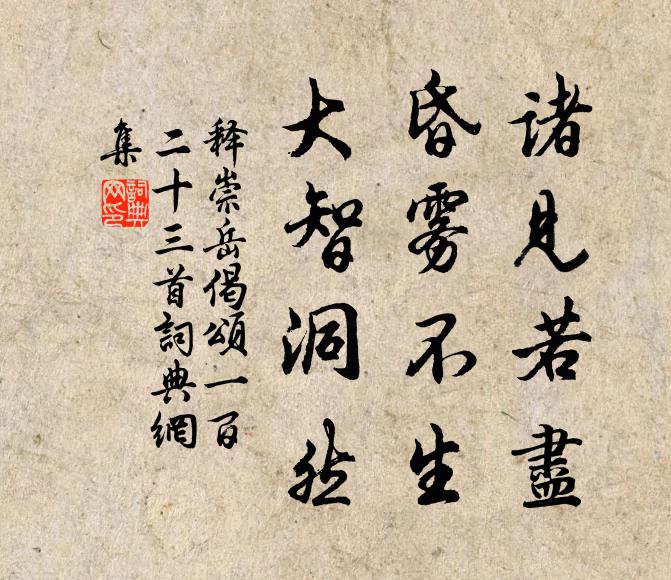 諸見若盡
昏雾不生
大智洞然
释崇岳偈頌一百
二十三首詞典網
集
詞典
网印